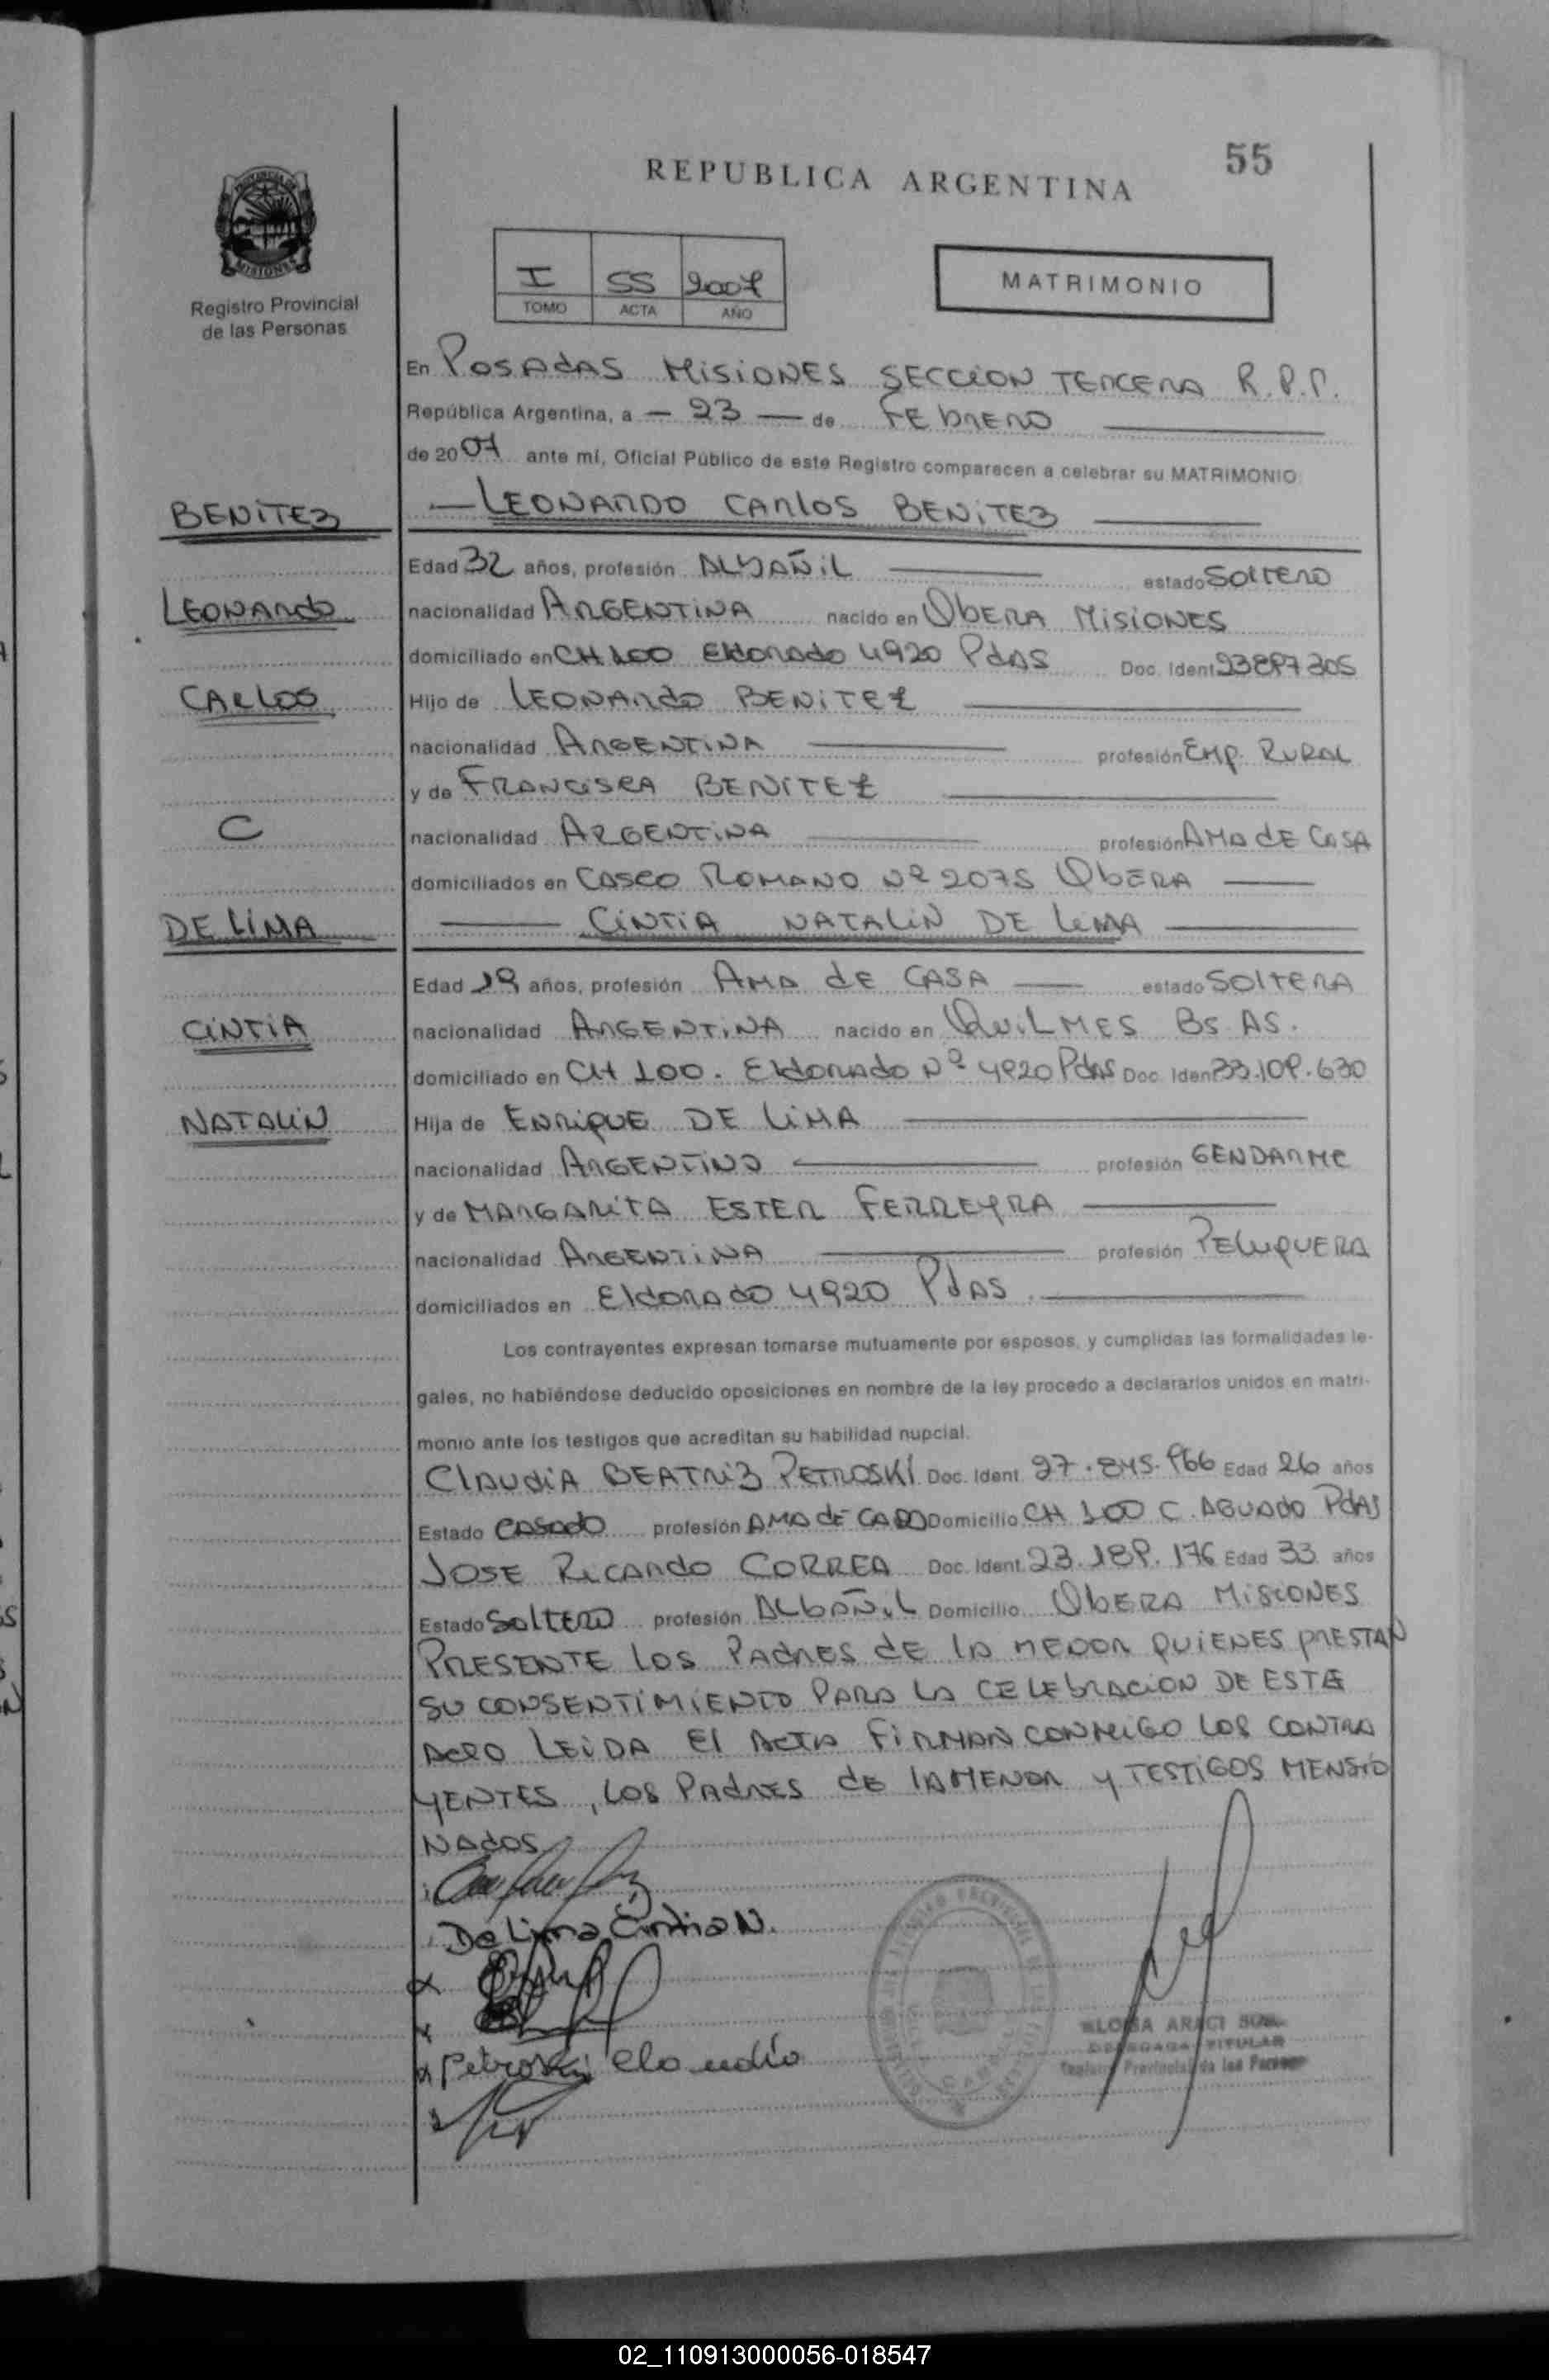 55
REPUBLICA ARGENTINA
PROVINCIA DE
MISIONES
Registro Provincial
de las Personas
I 55 2007
TOMO ACTA AÑO
MATRIMONIO
En POSADAS MISIONES SECCION TERCERA R.P.P.
República Argentina, a — 23 — de FEbRERO
de 2007 ante mí, Oficial Público de este Registro comparecen a celebrar su MATRIMONIO
BENITEZ
— LEONARDO CARlOS BENITEZ
Edad 32 años, profesión ALBAÑIL estado SOlTERO
LEONARdo
nacionalidad ARGENTINA nacido en ObERA MISIONES
domiciliado en CH 100 Eldorado 4920 PdAS Doc. Ident 23897305
CARLOS
Hijo de LEONARdo BENITEZ
nacionalidad ARGENTINA profesión EMP. RURAL
y de FRANCISCA BENITEZ
C
nacionalidad ARGENTINA profesión AMA dE CASA
domiciliados en CASEO ROMANO Nº 2075 ObERA
DE LIMA
CINTIA NATALIN DE LIMA
Edad 19 años, profesión AMA dE CASA estado SOLTERA
CINTIA
nacionalidad ARGENTINA nacido en QUILMES BS AS.
domiciliado en CH 100. Eldorado Nº 4920 PdAS Doc. Ident 33.109.630
NATALIN
Hija de ENRIQUE DE LIMA
nacionalidad ARGENTINO profesión GENDARME
y de MARGARITA ESTER FERREYRA
nacionalidad ARGENTINA profesión PELUQUERA
domiciliados en Eldorado 4920 PdAS
Los contrayentes expresan tomarse mutuamente por esposos, y cumplidas las formalidades le-
gales, no habiéndose deducido oposiciones en nombre de la ley procedo a declararlos unidos en matri-
monio ante los testigos que acreditan su habilidad nupcial.
ClAUdiA BEATRIZ PETROSKI Doc. Ident. 27.845.966 Edad 26 años
Estado CASAdo profesión AMA dE CASA Domicilio CH 100 C. AGUADO PdAS
JOSE RICARdo CORREA Doc. Ident. 23.189.176 Edad 33 años
Estado SOLTERO profesión ALBAÑIL Domicilio ObERA MISIONES
PRESENTE LOS PAdRES dE LA MENOR QUIENES PRESTAN
SU CONSENTIMIENTO PARA LA CELEbRACION DE ESTE
ACTO LEIDA El ACTA FIRMAN CONMIGO LOS CONTRA
YENTES, LOS PAdRES dE LA MENOR Y TESTIGOS MENSIO
NAdOS
De Lima Cintia N.
Petroski Claudia
ARACI
TITULAR
Provincial de las Personas
02_110913000056-018547